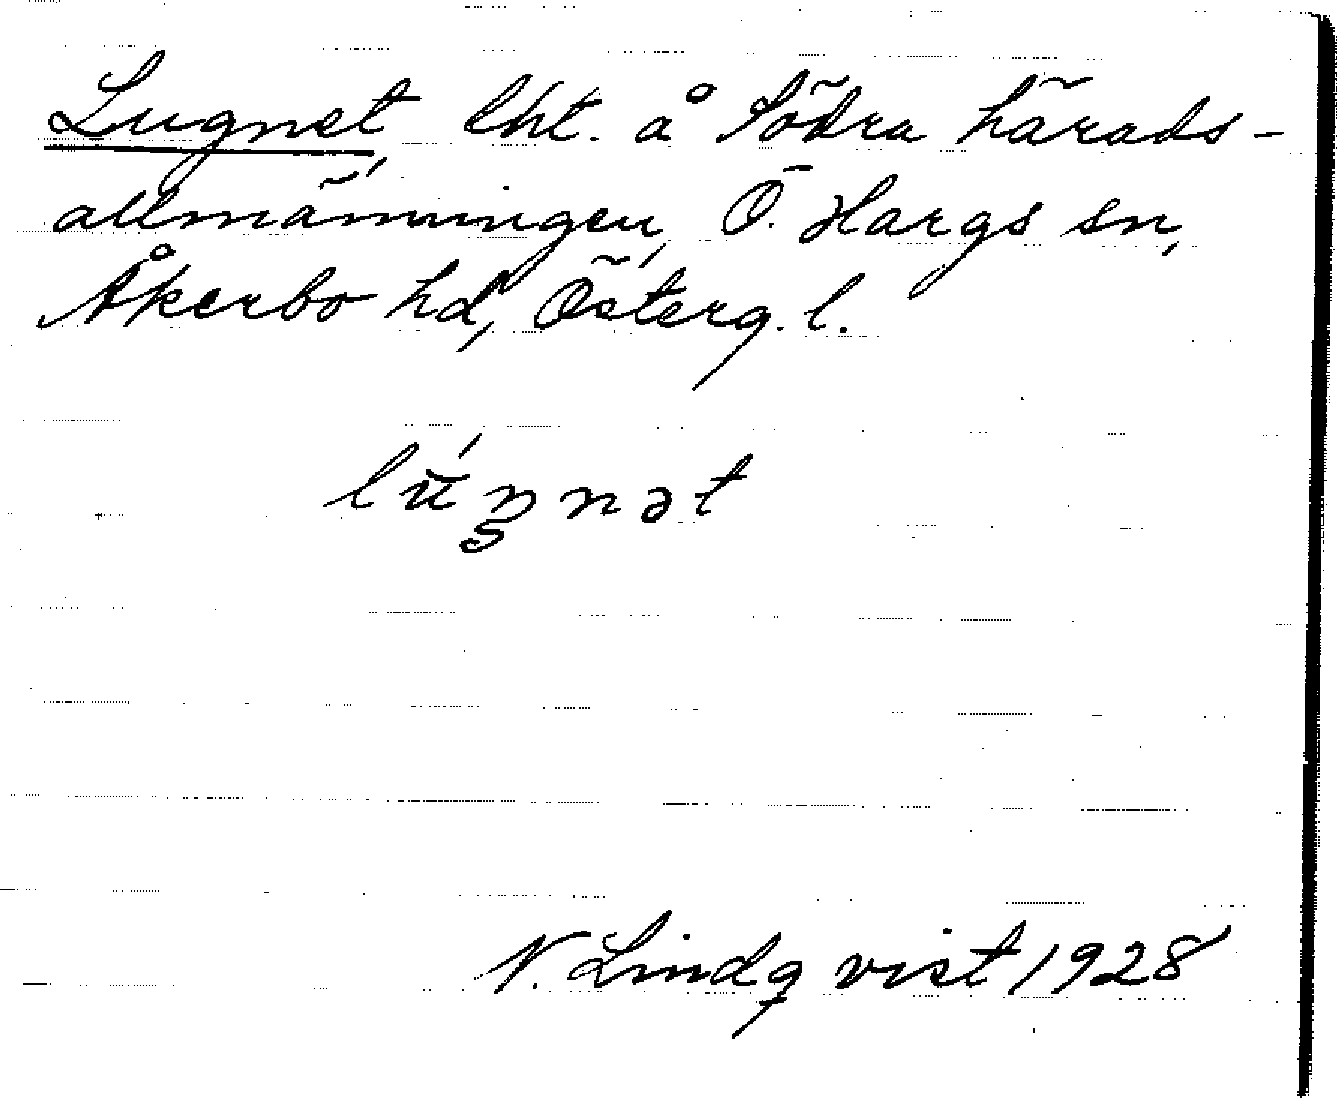 Lugnet, lht. å Södra härads-
allmänningen, Ö. Hargs sn,
Åkerbo hd, Österg. l.
lúŋnət
N. Lindqvist 1928